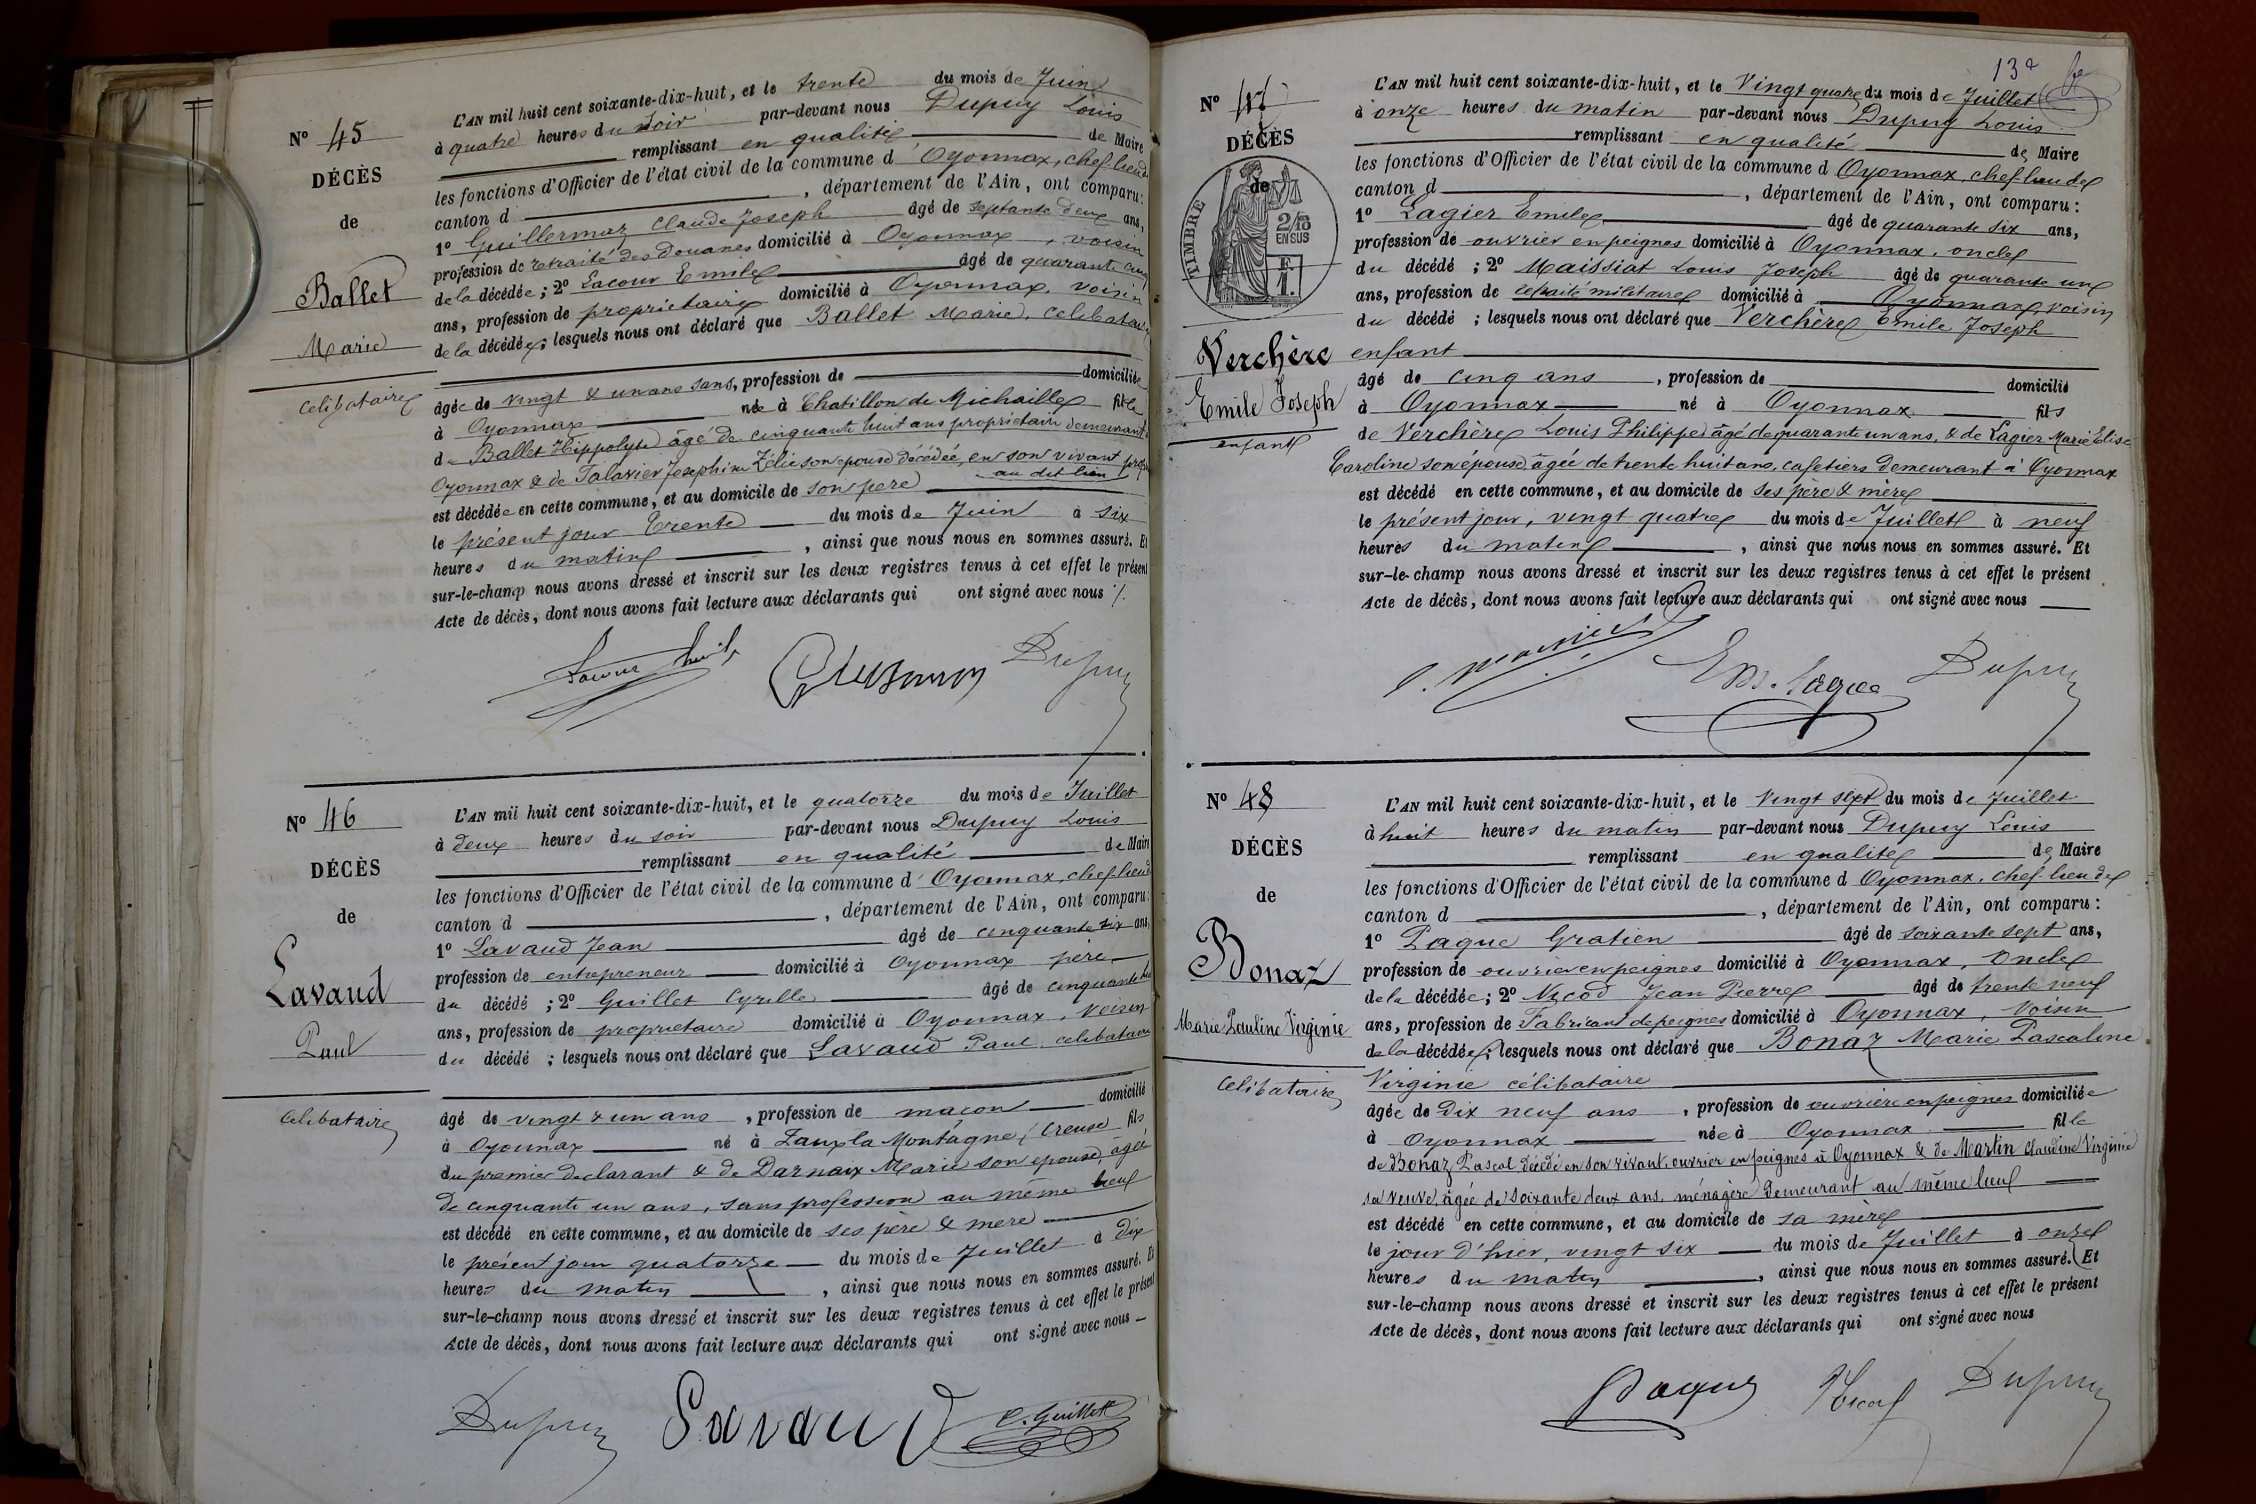 N° 45
DÉCÈS
de
Ballet
Marie
Celibataire
L'AN mil huit cent soixante-dix-huit, et le trente du mois de Juin
à quatre heures du soir par-devant nous Dupuy Louis
remplissant en qualité de Maire
les fonctions d'Officier de l'état civil de la commune d'Oyonnax, chef lieu de
canton d , département de l'Ain, ont comparu:
1° Guillermoz Claude Joseph âgé de septante deux ans,
profession de retraité des Douanes domicilié à Oyonnax, voisin
de la décédée; 2° Lacour Emile âgé de quarante cinq
ans, profession de propriétaire domicilié à Oyonnax, voisin
de la décédée; lesquels nous ont déclaré que Ballet Marie, celibataire
âgée de vingt & un ans sans, profession de domiciliée
à Oyonnax née à Chatillon de Michaille fille
de Ballet Hippolyte âgé de cinquante huit ans propriétaire demeurant à
Oyonnax & de Talavier Josephine Zélie son épouse décédée, en son vivant
au dit lieu
est décédée en cette commune, et au domicile de son père
le présent jour Trente du mois de Juin à six
heures du matin , ainsi que nous nous en sommes assuré. Et
sur-le-champ nous avons dressé et inscrit sur les deux registres tenus à cet effet le présent
Acte de décès, dont nous avons fait lecture aux déclarants qui ont signé avec nous
Dupuy
N° 46
DÉCÈS
de
Lavaud
Paul
Celibataire
L'AN mil huit cent soixante-dix-huit, et le quatorze du mois de Juillet
à deux heures du soir par-devant nous Dupuy Louis
remplissant en qualité de Maire
les fonctions d'Officier de l'état civil de la commune d'Oyonnax, chef lieu de
canton d , département de l'Ain, ont comparu:
1° Lavaud Jean âgé de cinquante six ans,
profession de entrepreneur domicilié à Oyonnax père
du décédé; 2° Guillet Cyrille âgé de cinquante
ans, profession de propriétaire domicilié à Oyonnax, voisin
du décédé; lesquels nous ont déclaré que Lavaud Paul celibataire
âgé de vingt & un ans, profession de maçon domicilié
à Oyonnax né à Faux la Montagne (Creuse fils
du premier declarant & de Darnaix Marie son épouse, âgée
de cinquante un ans, sans profession au même lieu
est décédé en cette commune, et au domicile de ses père & mère
le présent jour quatorze du mois de Juillet à dix
heures du matin , ainsi que nous nous en sommes assuré. Et
sur-le-champ nous avons dressé et inscrit sur les deux registres tenus à cet effet le présent
Acte de décès, dont nous avons fait lecture aux déclarants qui ont signé avec nous
Dupuy Lavaud C. Guillet
13e
N° 47
DÉCÈS
de
TIMBRE
2/10
EN SUS
Verchère
Emile Joseph
enfant
L'AN mil huit cent soixante-dix-huit, et le Vingt quatre du mois de Juillet
à onze heures du matin par-devant nous Dupuy Louis
remplissant en qualité de Maire
les fonctions d'Officier de l'état civil de la commune d Oyonnax, chef lieu de
canton d , département de l'Ain, ont comparu:
1° Lagier Emile âgé de quarante six ans,
profession de ouvrier en peignes domicilié à Oyonnax, oncle
du décédé; 2° Maissiat Louis Joseph âgé de quarante un
ans, profession de retraité militaire domicilié à Oyonnax, voisin
du décédé; lesquels nous ont déclaré que Verchère Emile Joseph
enfant
âgé de cinq ans, profession de domicilié
à Oyonnax né à Oyonnax fils
de Verchère Louis Philippe âgé de quarante un ans, & de Lagier Marie Elise
Caroline son épouse âgée de trente huit ans, cafetiers demeurant à Oyonnax
est décédé en cette commune, et au domicile de ses père & mère
le présent jour, vingt quatre du mois de Juillet à neuf
heures du matin , ainsi que nous nous en sommes assuré. Et
sur-le-champ nous avons dressé et inscrit sur les deux registres tenus à cet effet le présent
Acte de décès, dont nous avons fait lecture aux déclarants qui ont signé avec nous
Dupuy
N° 48
DÉCÈS
de
Bonaz
Marie Pauline Virginie
Celibataire
L'AN mil huit cent soixante-dix-huit, et le Vingt sept du mois de Juillet
à huit heures du matin par-devant nous Dupuy Louis
remplissant en qualité de Maire
les fonctions d'Officier de l'état civil de la commune d Oyonnax, chef lieu de
canton d , département de l'Ain, ont comparu:
1° Paque Gratien âgé de soixante sept ans,
profession de ouvrier en peignes domicilié à Oyonnax, Oncle
de la décédée; 2° Nicod Jean Pierre âgé de trente neuf
ans, profession de Fabricant de peignes domicilié à Oyonnax, Voisin
de la décédée; lesquels nous ont déclaré que Bonaz Marie Pascaline
Virginie célibataire
âgée de Dix neuf ans, profession de ouvrière en peignes domiciliée
à Oyonnax née à Oyonnax fille
de Bonaz Pascal décédé en son vivant ouvrier en peignes à Oyonnax & de Martin Claudine Virginie
sa veuve, âgée de soixante deux ans, ménagère demeurant au même lieu
est décédé en cette commune, et au domicile de sa mère
le jour d'hier, vingt six du mois de Juillet à onze
heures du matin , ainsi que nous nous en sommes assuré. Et
sur-le-champ nous avons dressé et inscrit sur les deux registres tenus à cet effet le présent
Acte de décès, dont nous avons fait lecture aux déclarants qui ont signé avec nous
Paque Nicod Dupuy